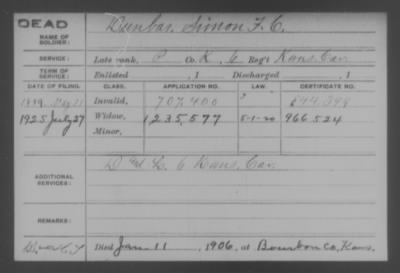 DEAD
NAME OF SOLDIER: Dunbar, Simon F. C.
SERVICE: Late rank, P Co. K, 6 Reg't Kans. Cav.
TERM OF SERVICE: Enlisted , 1 Discharged , 1
DATE OF FILING. CLASS. APPLICATION NO. LAW. CERTIFICATE NO.
Invalid, 707,400 844,349
1925 July 27 Widow, 1,235,577 5-1-20 966524
Minor,
ADDITIONAL SERVICES: 6 Kans. Cav.
REMARKS:
Died Jan 11, 1906, at Bourbon Co, Kans.